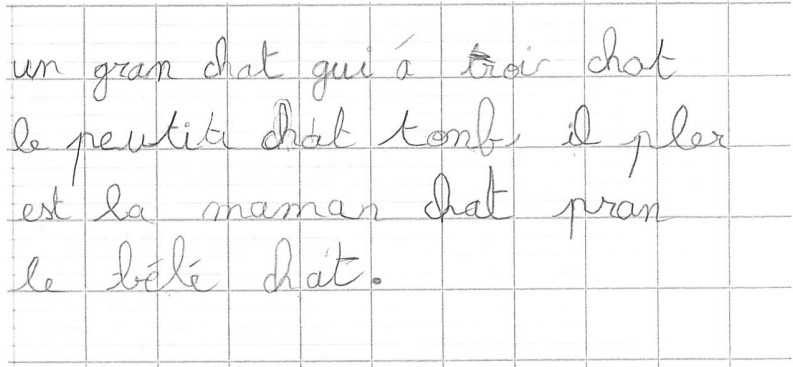 un gran chat qui á troi chat
le peutiti chat tonb il pler
est la maman chat pran
le bébé chat.